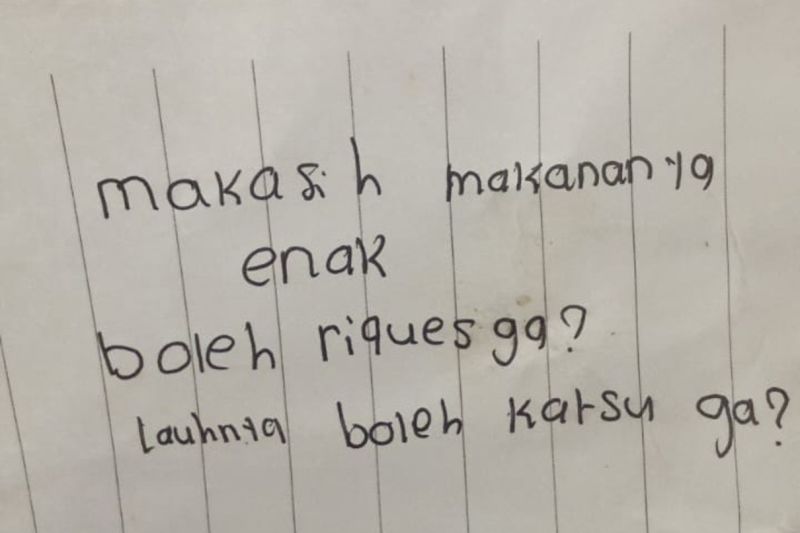 makasih makanannya
enak
boleh riques ga?
lauhnya boleh katsu ga?